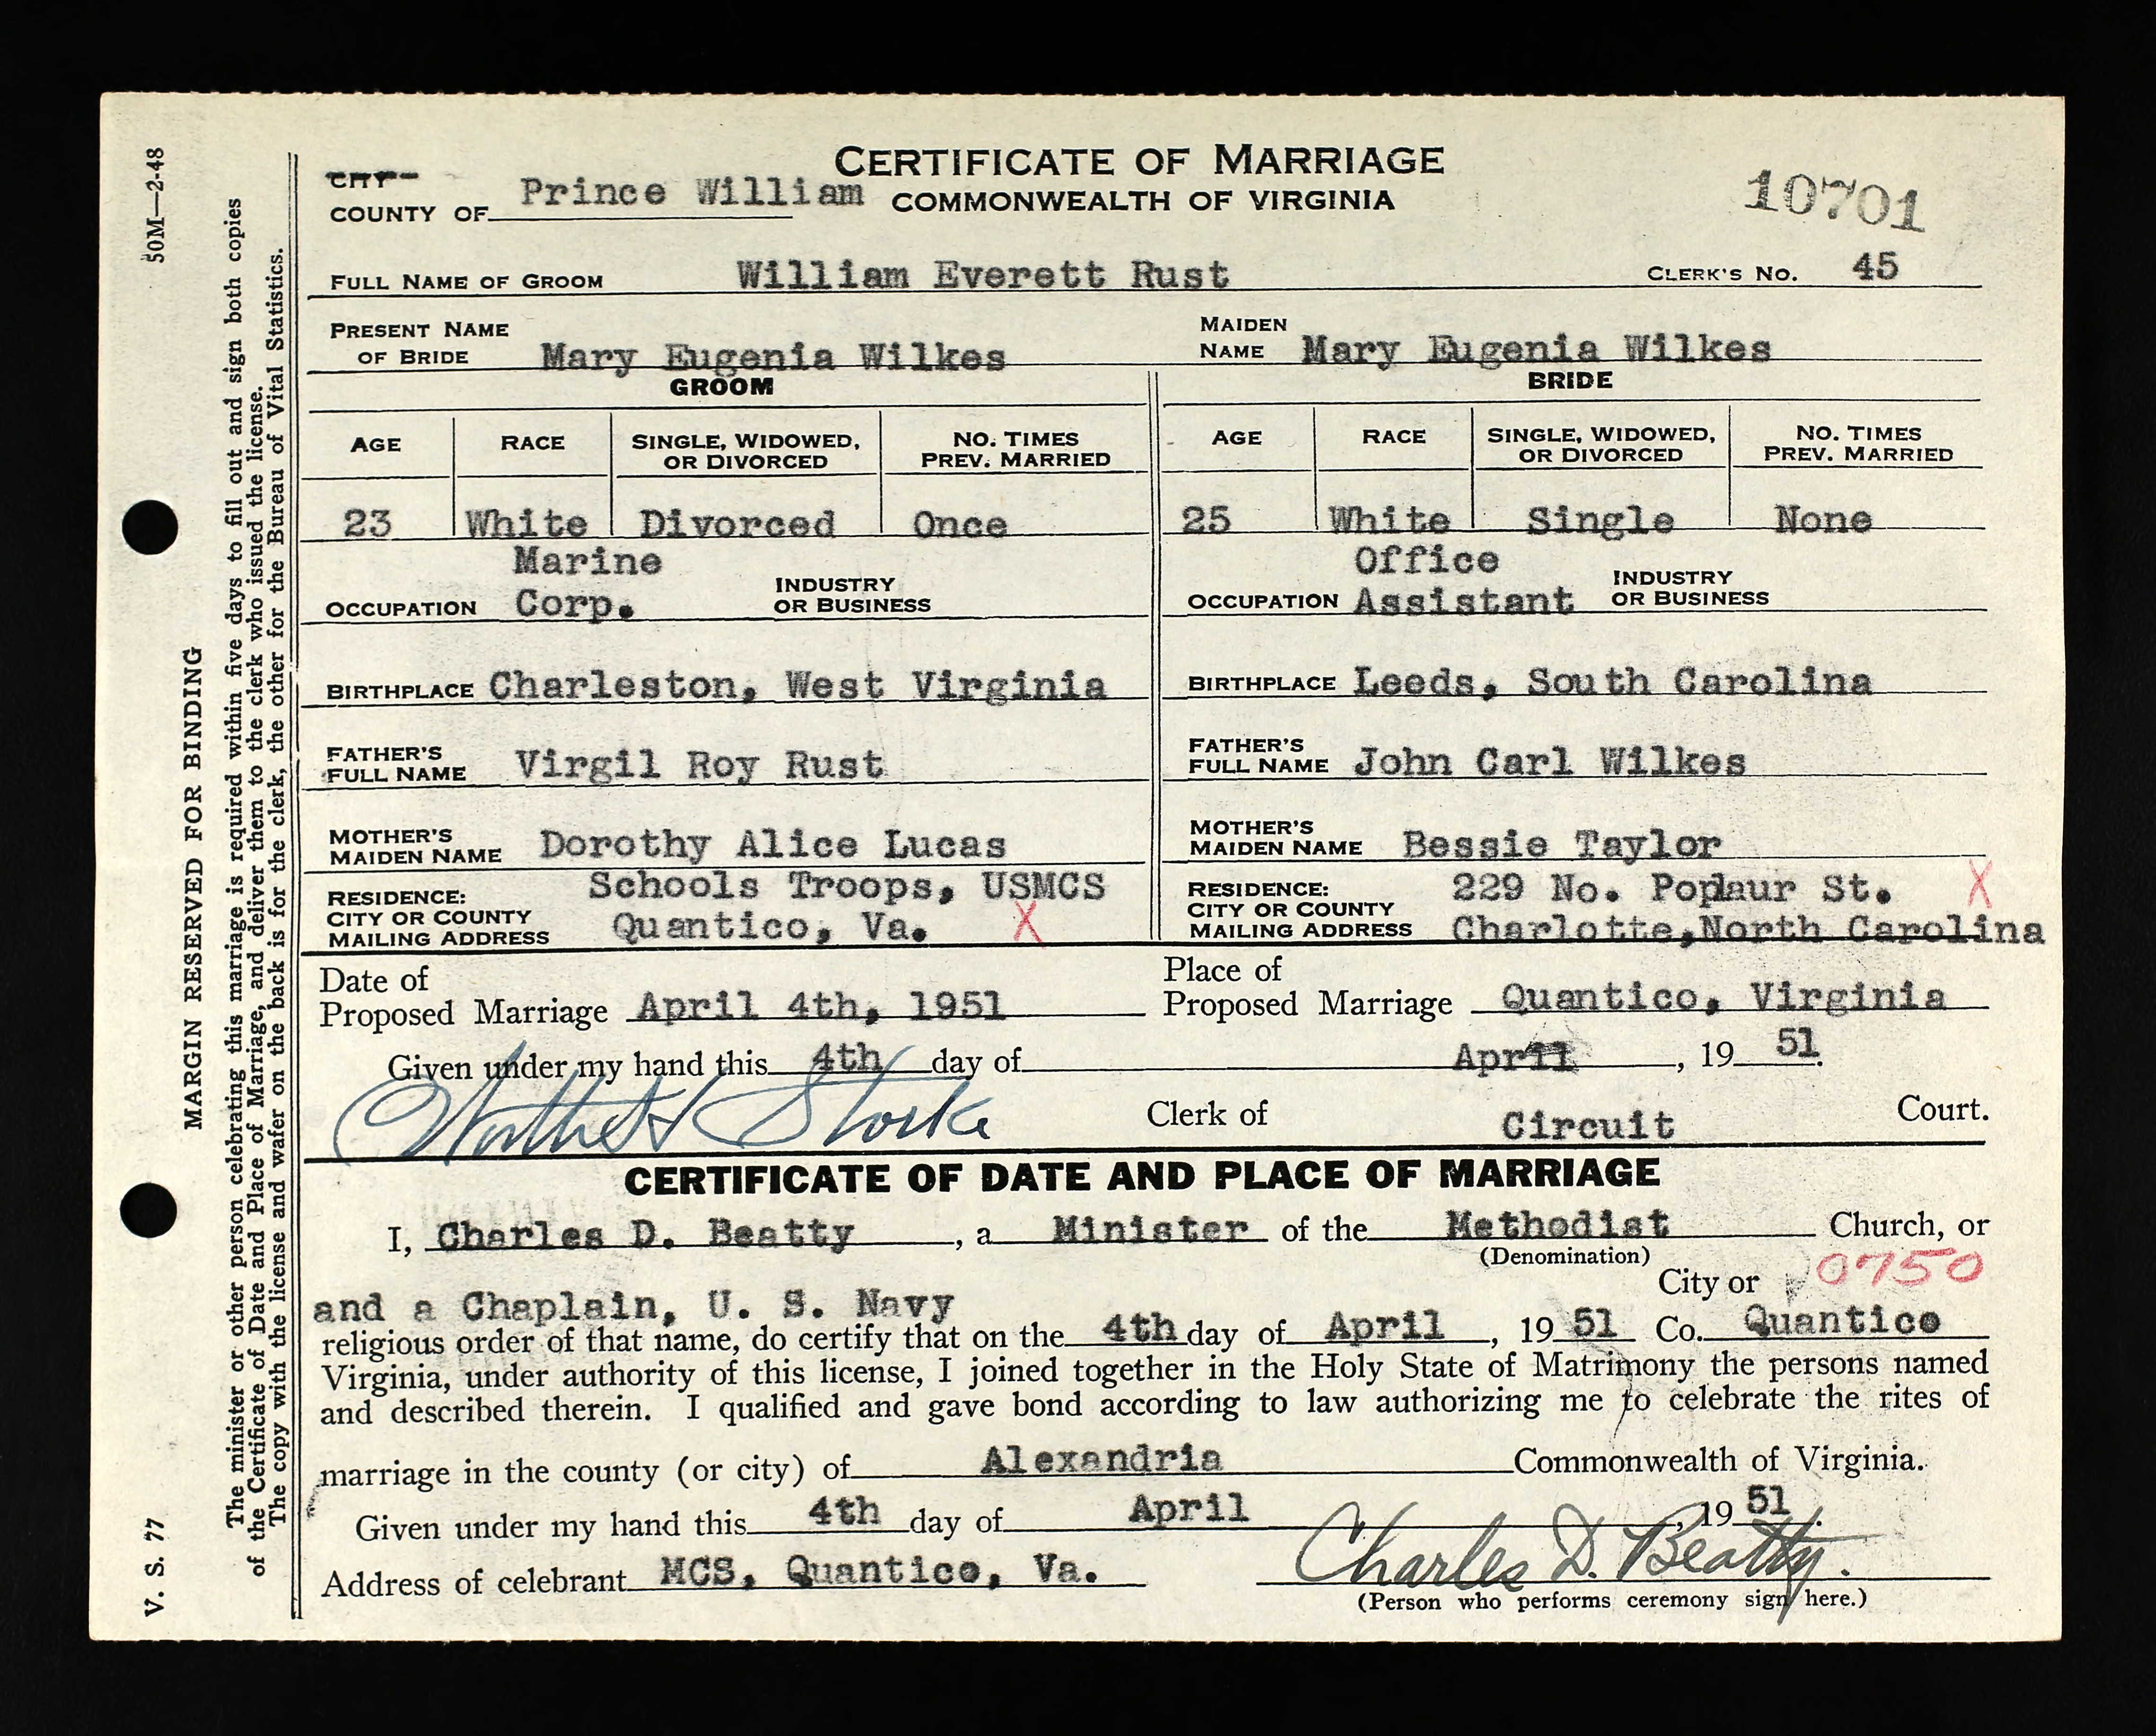 CERTIFICATE OF MARRIAGE
COMMONWEALTH OF VIRGINIA
CITY
COUNTY OF Prince William
10701
FULL NAME OF GROOM William Everett Rust CLERK'S NO. 45
PRESENT NAME OF BRIDE Mary Eugenia Wilkes MAIDEN NAME Mary Eugenia Wilkes
GROOM BRIDE
AGE RACE SINGLE, WIDOWED, OR DIVORCED NO. TIMES PREV. MARRIED AGE RACE SINGLE, WIDOWED, OR DIVORCED NO. TIMES PREV. MARRIED
23 White Divorced Once 25 White Single None
OCCUPATION Marine Corp. INDUSTRY OR BUSINESS OCCUPATION Office Assistant INDUSTRY OR BUSINESS
BIRTHPLACE Charleston, West Virginia BIRTHPLACE Leeds, South Carolina
FATHER'S FULL NAME Virgil Roy Rust FATHER'S FULL NAME John Carl Wilkes
MOTHER'S MAIDEN NAME Dorothy Alice Lucas MOTHER'S MAIDEN NAME Bessie Taylor
RESIDENCE: Schools Troops, USMCS RESIDENCE: 229 No. Poplaur St. X
CITY OR COUNTY
MAILING ADDRESS Quantico, Va. X CITY OR COUNTY
MAILING ADDRESS Charlotte,North Carolina
Date of
Proposed Marriage April 4th, 1951 Place of
Proposed Marriage Quantico, Virginia
Given under my hand this 4th day of April, 19 51.
Clerk of Circuit Court.
CERTIFICATE OF DATE AND PLACE OF MARRIAGE
I, Charles D. Beatty, a Minister of the Methodist Church, or
(Denomination)
City or 0750
and a Chaplain, U. S. Navy
religious order of that name, do certify that on the 4th day of April, 19 51 Co. Quantico
Virginia, under authority of this license, I joined together in the Holy State of Matrimony the persons named
and described therein. I qualified and gave bond according to law authorizing me to celebrate the rites of
marriage in the county (or city) of Alexandria Commonwealth of Virginia.
Given under my hand this 4th day of April, 19 51.
Address of celebrant MCS, Quantico, Va. Charles D. Beatty.
(Person who performs ceremony sign here.)
V. S. 77 MARGIN RESERVED FOR BINDING 50M—2-48
The minister or other person celebrating this marriage is required within five days to fill out and sign both copies
of the Certificate of Date and Place of Marriage, and deliver them to the clerk who issued the license.
The copy with the license and wafer on the back is for the clerk, the other for the Bureau of Vital Statistics.